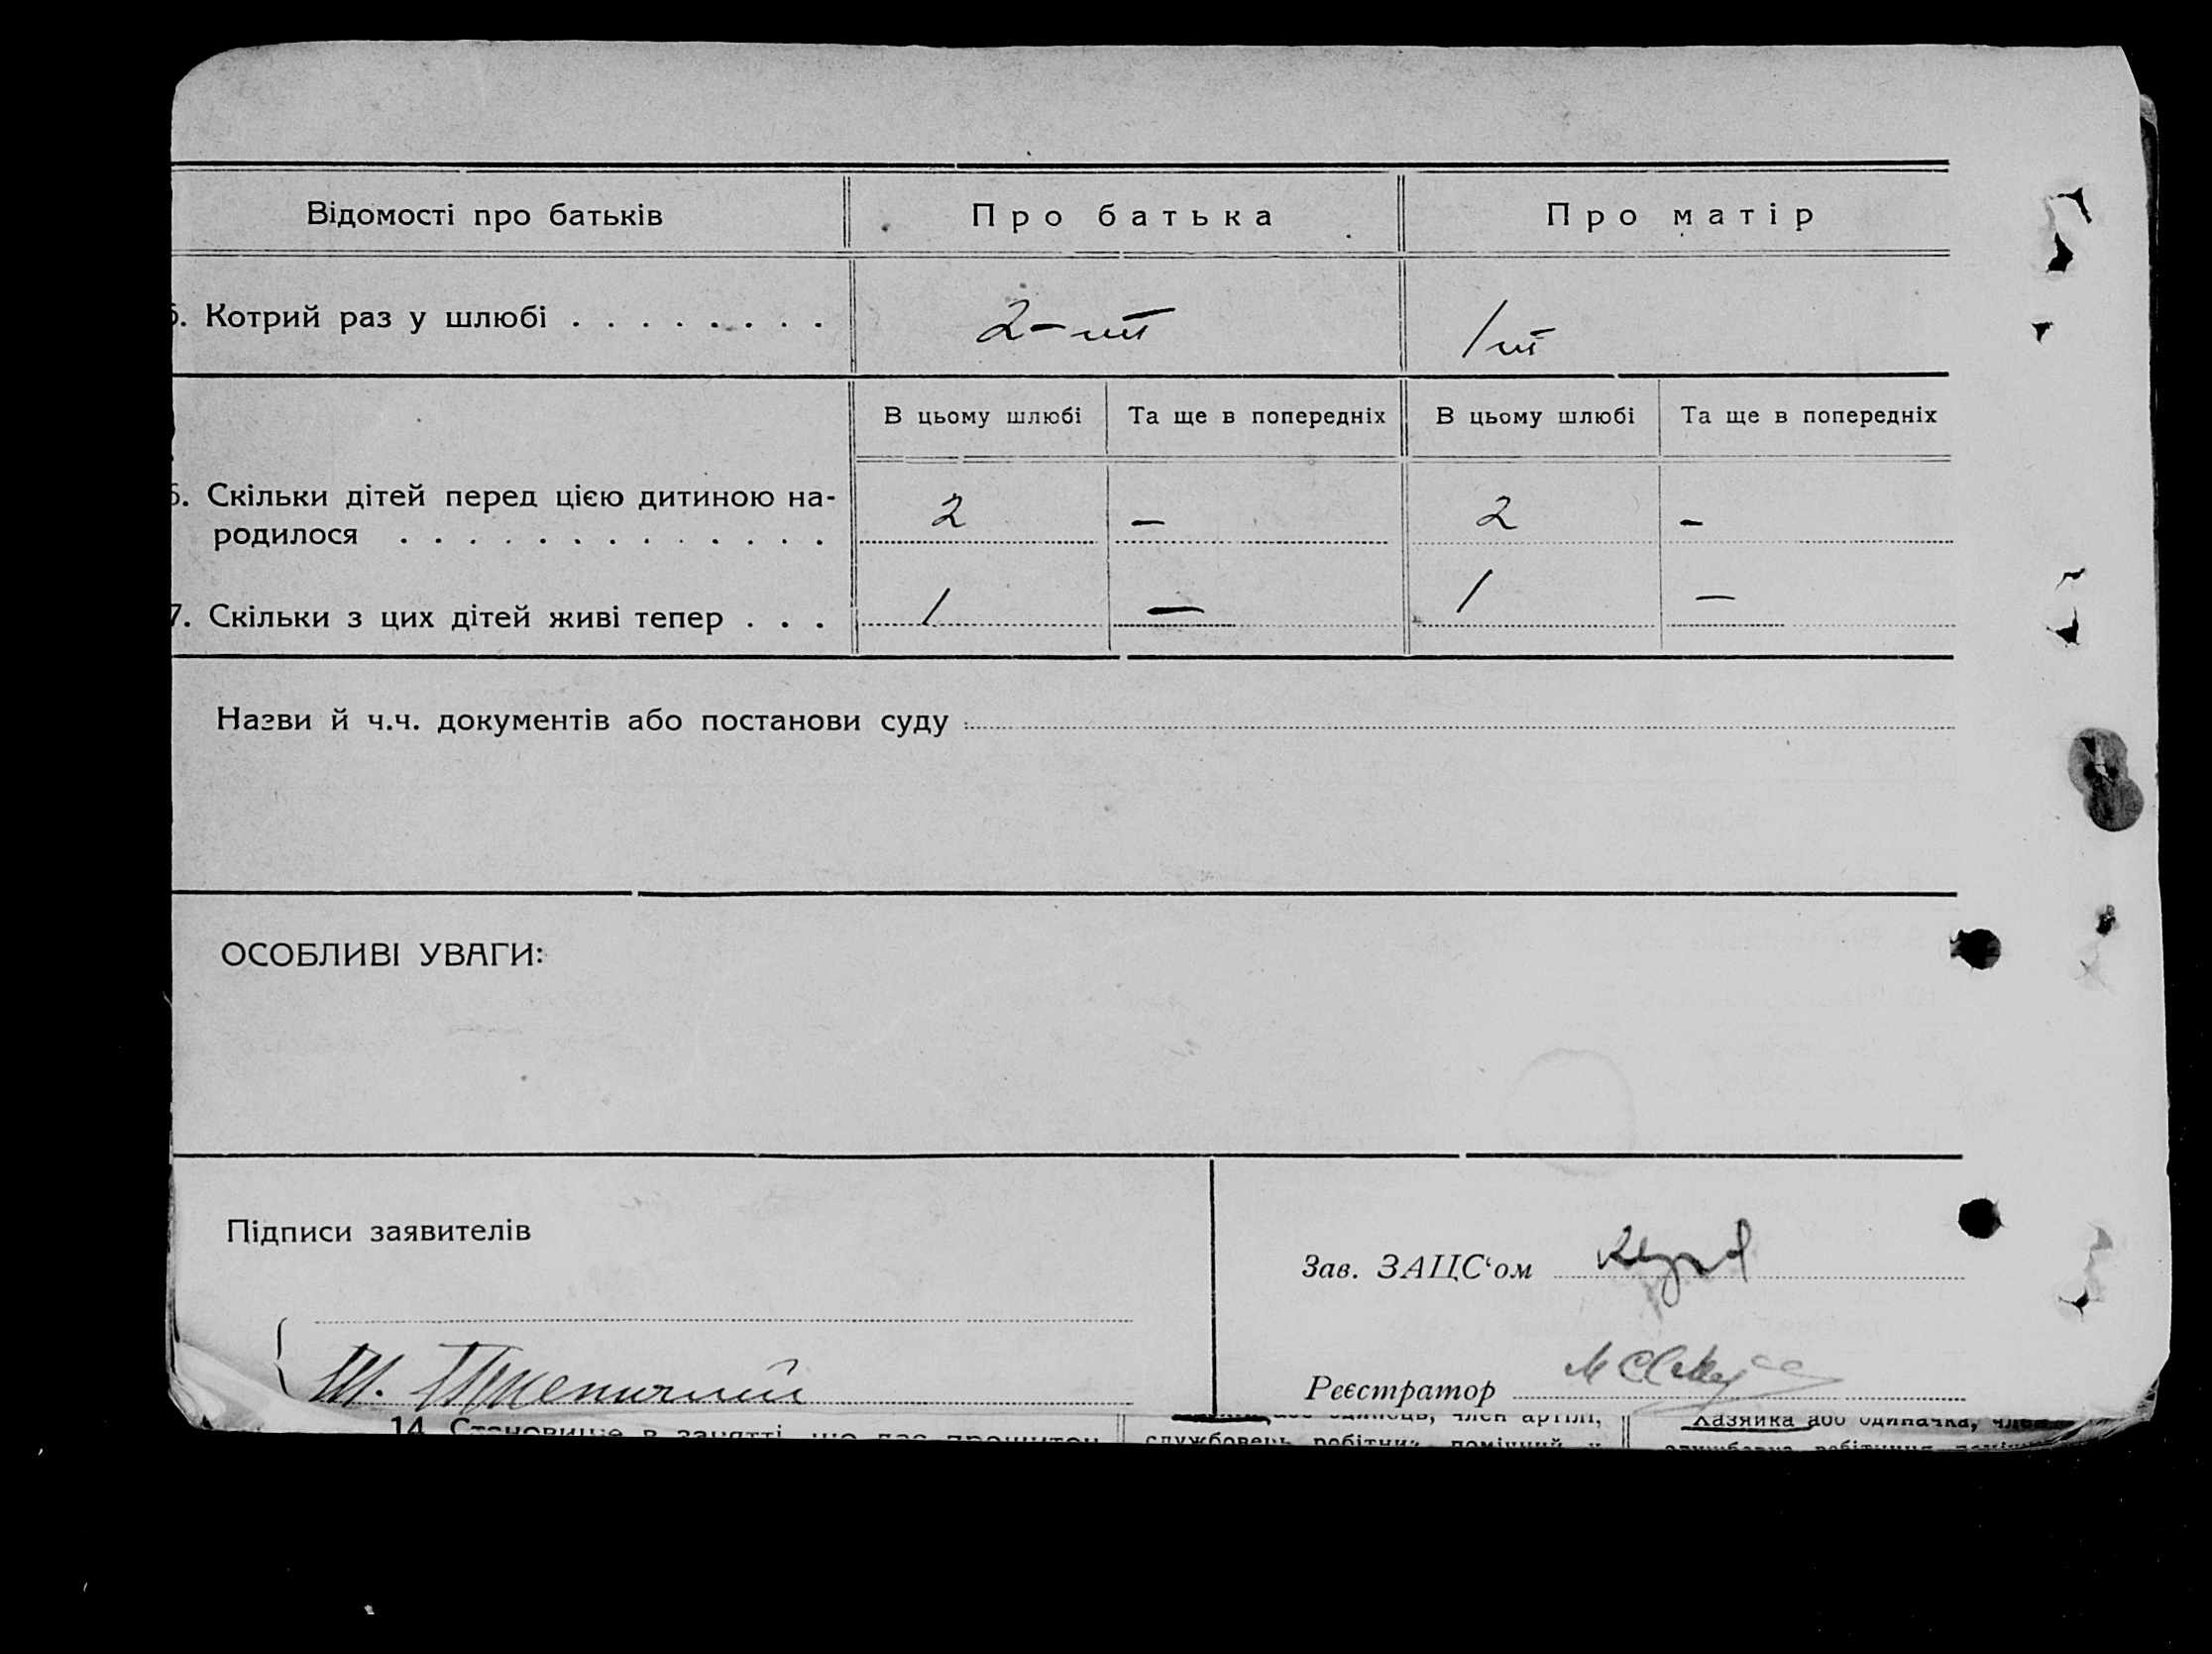 Відомості про батьків Про батька Про матір
Котрий раз у шлюбі . . . . . . . . 2-ий 1ий
В цьому шлюбі Та ще в попередніх В цьому шлюбі Та ще в попередніх
Скільки дітей перед цією дитиною на-
родилося . . . . . . . . . . . . . 2 – 2 –
7. Скільки з цих дітей живі тепер . . . 1 — 1 —
Назви й ч.ч. документів або постанови суду
ОСОБЛИВІ УВАГИ:
Підписи заявителів
Зав. ЗАЦС‘ом
Реєстратор
14. Становище в занятті, що дає прошиток
або одинець, член артілі,
службовець робітник помічний
Хазяйка або одиначка,